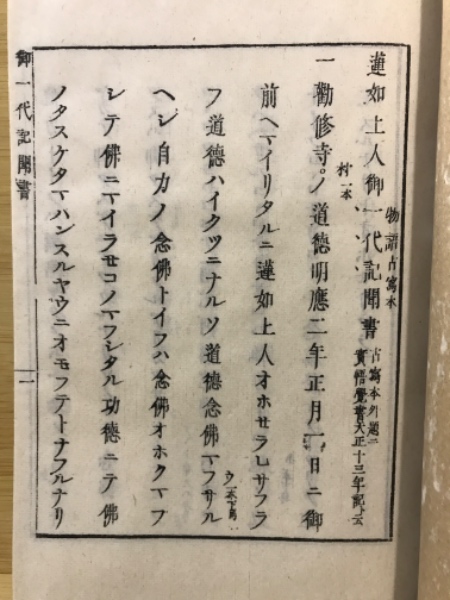 蓮如上人御一代記聞書
物語古寫本
古寫本外題ニ
實悟覺書天正十三年記ト云
一勸修寺ノ道德明應二年正月一日ニ御
村一本
前ヘマイリタルニ蓮如上人オホセラレサフラ
フ道德ハイクツニナルソ道德念佛マフサル
ヘシ自力ノ念佛トイフハ念佛オホクマフ
シテ佛ニマイラセコノマフシタル功德ニテ佛
ノタスケタマハンスルヤウニオモフテトナフルナリ
御一代記聞書
一